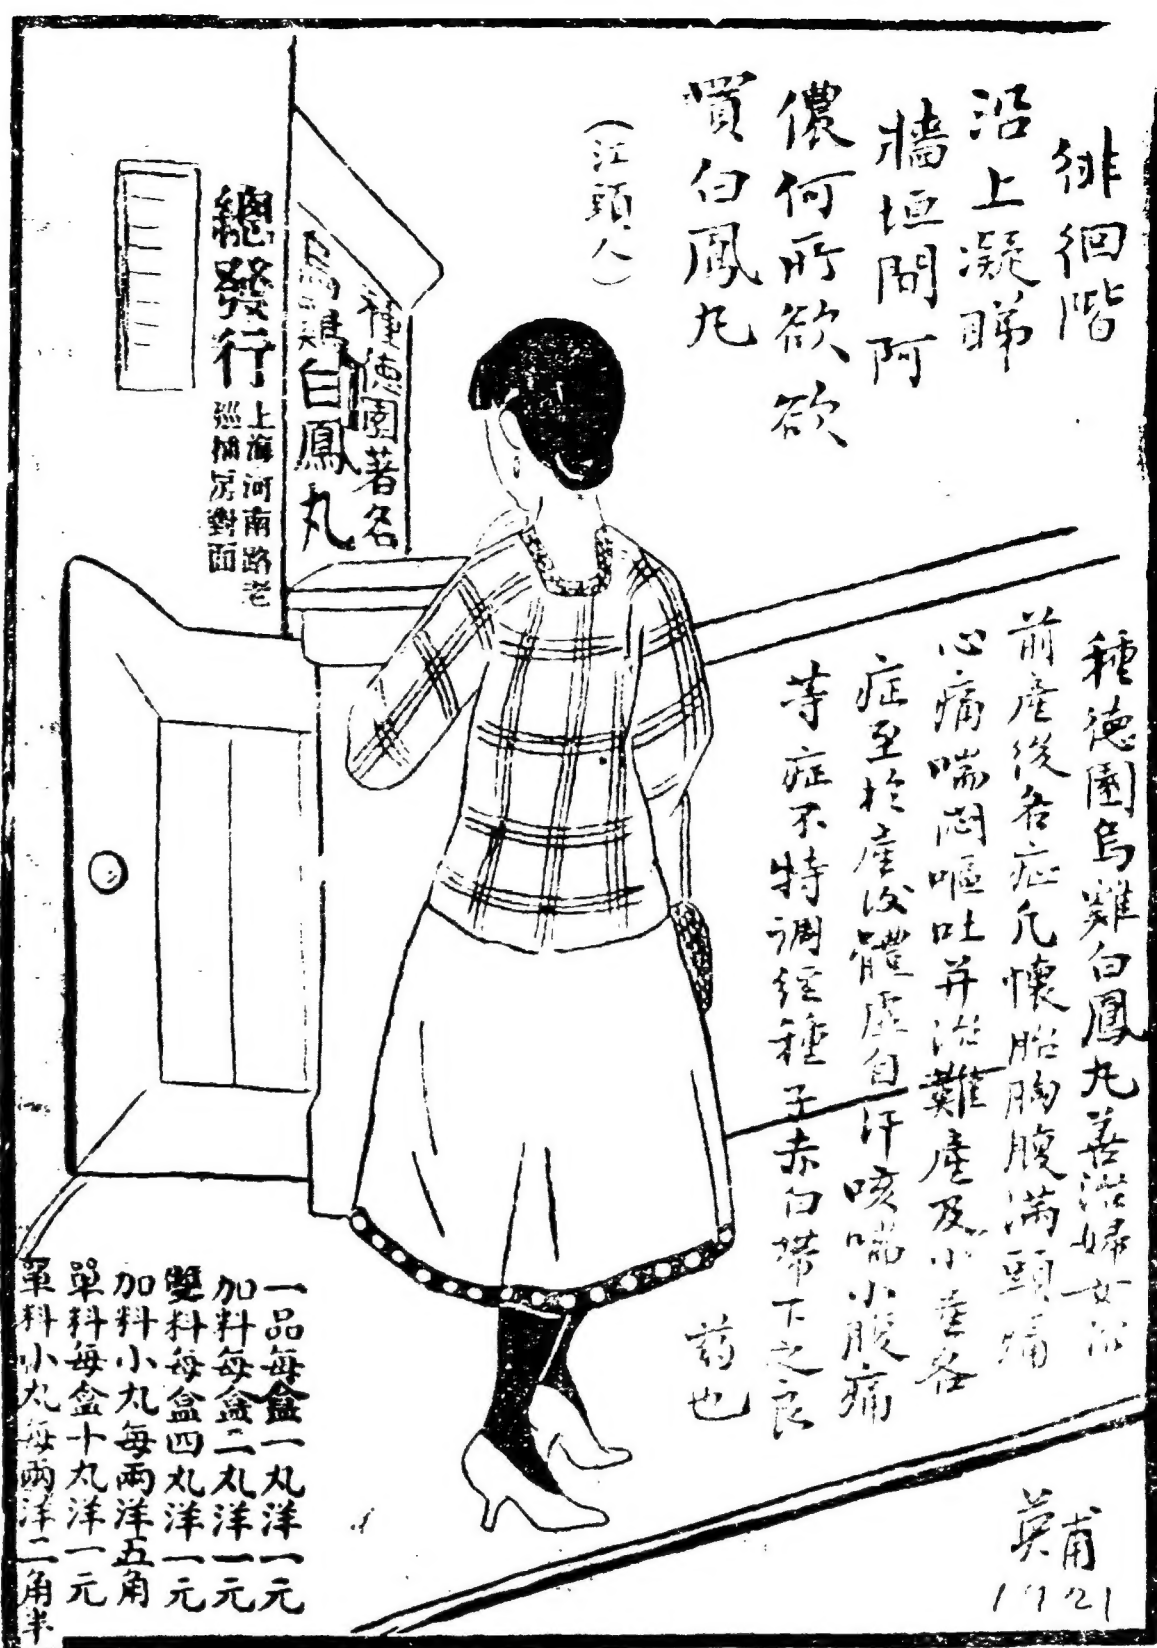 徘徊階
沿上凝睇
牆垣間阿
儂何所欲欲
買白鳳丸
(江頭人)
種德園著名
烏鷄白鳳丸
總發行
上海河南路老
巡捕房對面
種德園烏雞白鳳丸善治婦女胎
前產後各症凡懷胎胸腹滿頭痛
心痛喘悶嘔吐并治難產及小產各
症至於產後體虛自汗咳喘小腹痛
等症不特調經種子赤白帶下之良
药也
一品每盒一丸洋一元
加料每盒二丸洋一元
雙料每盒四丸洋一元
加料小丸每兩洋五角
單料每盒十丸洋一元
單料小丸每兩洋二角半
英甫
1921